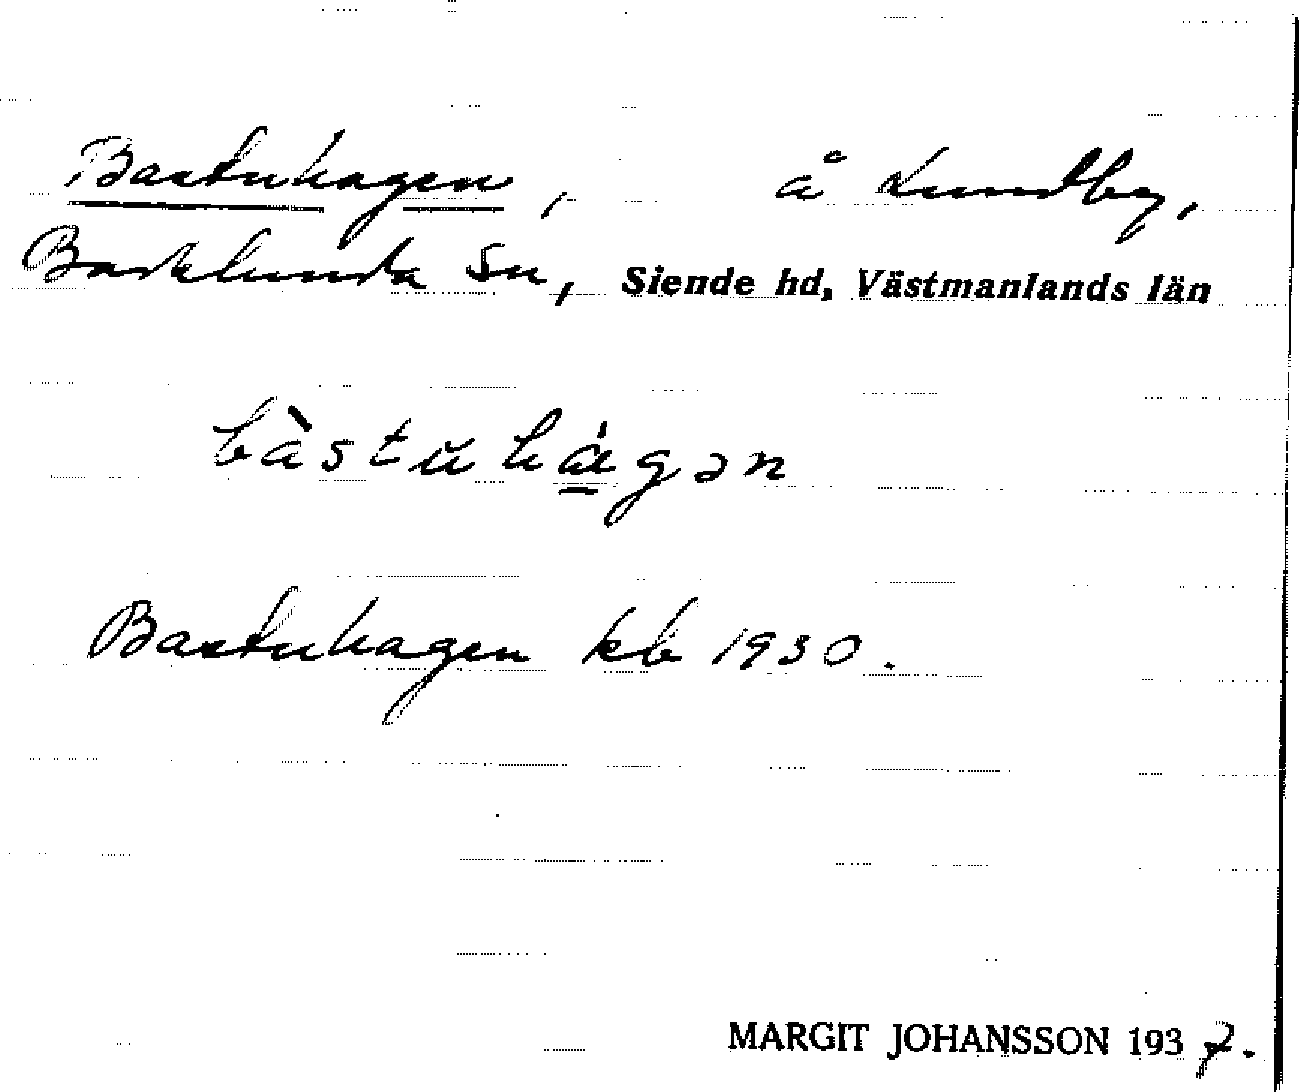 Bastuhagen, å Lundby,
Barkhunda Sn, Siende hd, Västmanlands län
bàstŭhа́gən
Bastuhagen kb 1930.
MARGIT JOHANSSON 1937.